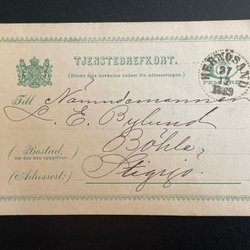 TJENSTEBREFKORT.
(Denna sida användes endast för adresseringen.)
Till Nämndemannen
L. E. Bylund
(Bostad om den kan uppgifvas) Böhle,
(Adressort:)
HERNÖSAND
21